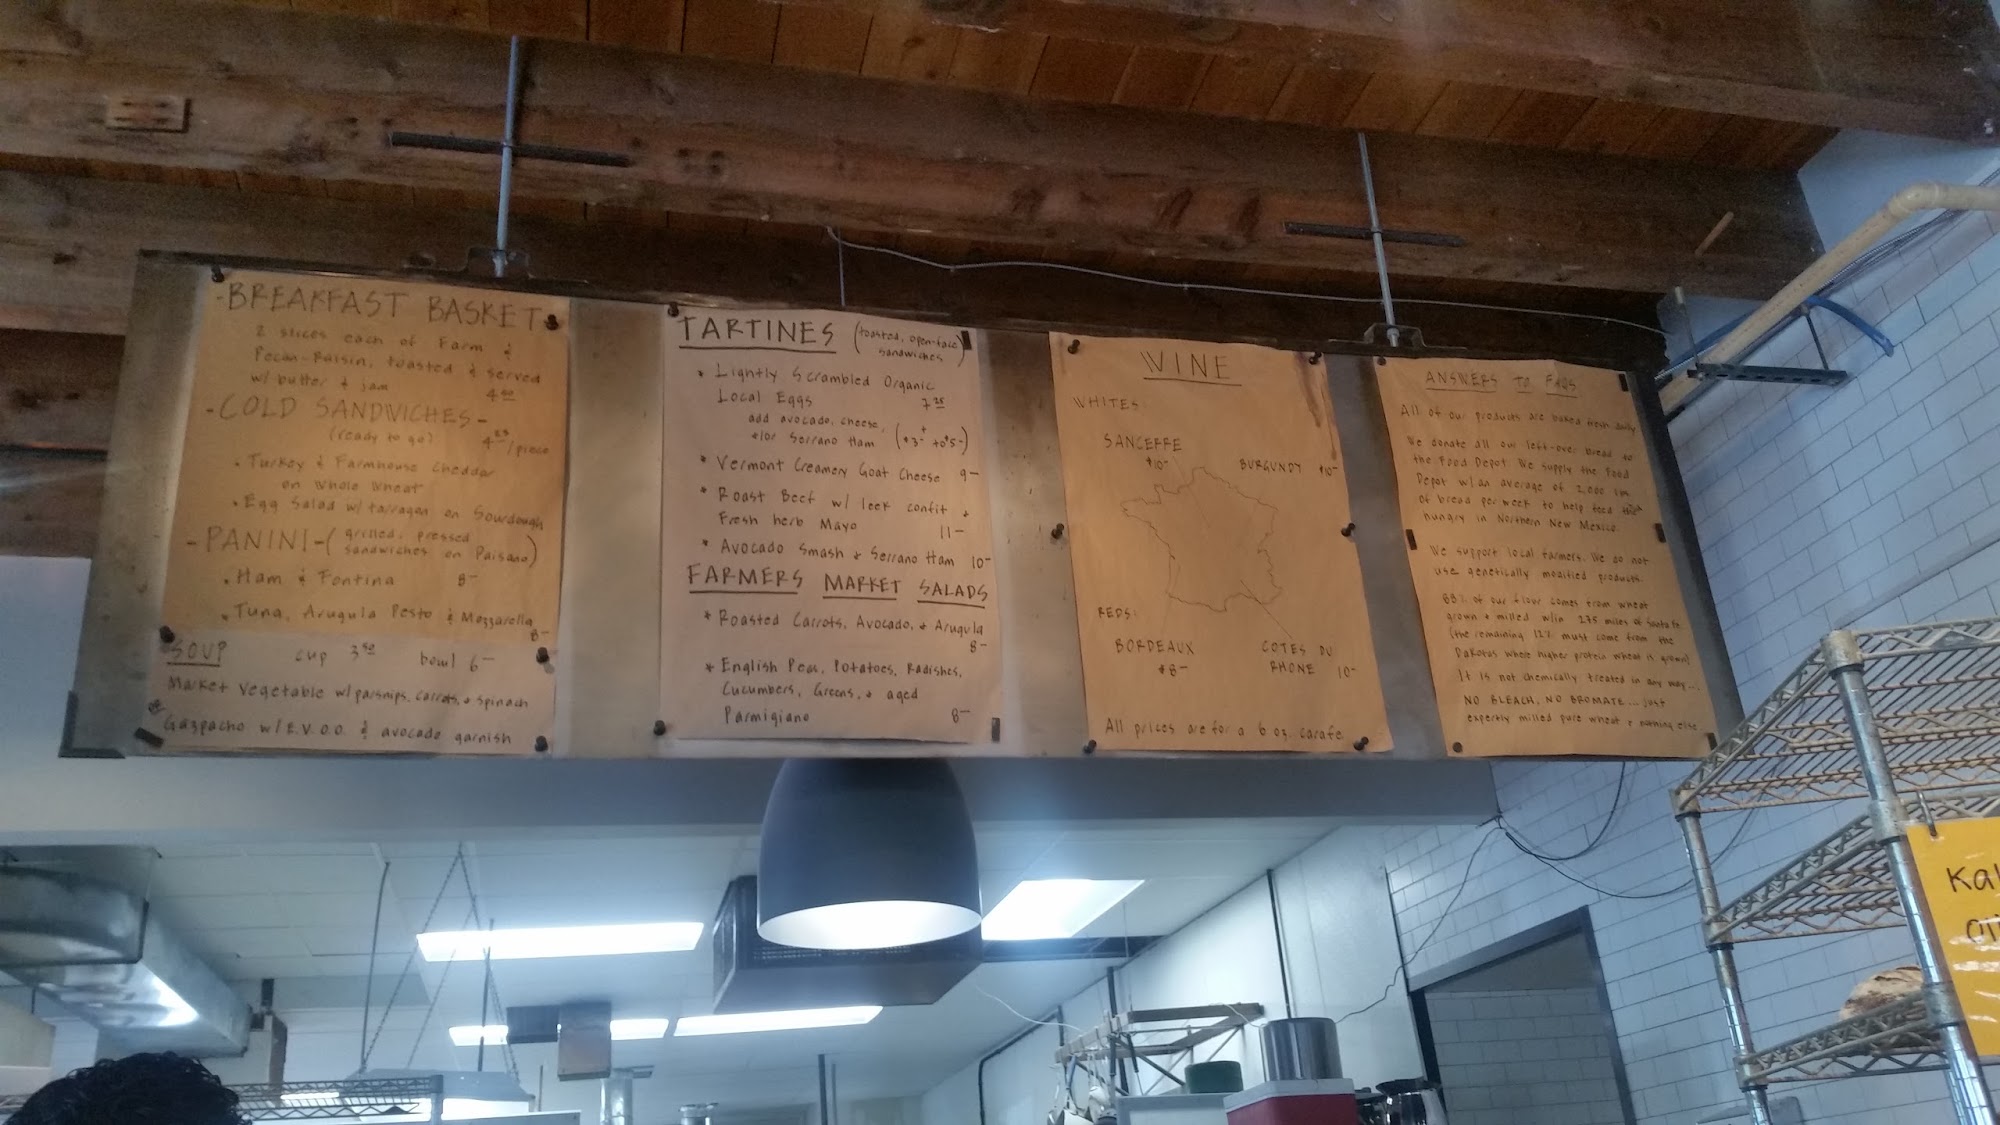 - BREAKFAST BASKET
2 slices each of Farm &
Pecan-Raisin, toasted & served
w/ butter & jam
4
- COLD SANDWICHES -
(ready to go) 4 /piece
• Turkey & Farmhouse Cheddar
on Whole Wheat
• Egg Salad w/ tarragon on Sourdough
- PANINI - (grilled, pressed
sandwiches on Paisano)
• Ham & Fontina 8-
• Tuna, Arugula Pesto & Mozzarella
8-
SOUP cup 3 50 bowl 6-
Market Vegetable w/ parsnips, carrots, + spinach
Gazpacho w/ E.V.O.O. & avocado garnish
TARTINES (toasted, open-face
sandwiches)
* Lightly Scrambled Organic
Local Eggs 7 25
add avocado, cheese,
+/or Serrano Ham (+$3- to $5-)
* Vermont Creamery Goat Cheese 9-
* Roast Beef w/ leek confit +
Fresh herb Mayo 11-
* Avocado Smash + Serrano Ham 10-
FARMERS MARKET SALADS
* Roasted Carrots, Avocado, + Arugula
8-
* English Peas, Potatoes, Radishes,
Cucumbers, Greens, + aged
Parmigiano 8-
WINE
WHITES:
SANCERRE
$10-
BURGUNDY $10-
REDS:
BORDEAUX
$8-
COTES DU
RHONE 10-
All prices are for a 6 oz. carafe.
ANSWERS TO FAQS
All of our products are baked fresh daily
We donate all our left-over bread to
the Food Depot. We supply the Food
Depot w/ an average of 2,000 lbs.
of bread per week to help feed the
hungry in Northern New Mexico.
We support local farmers. We do not
use genetically modified products.
88% of our flour comes from wheat
grown + milled w/in 275 miles of Santa Fe
(the remaining 12% must come from the
Dakotas where higher protein wheat is grown)
It is not chemically treated in any way...
NO BLEACH, NO BROMATE... just
expertly milled pure wheat & nothing else